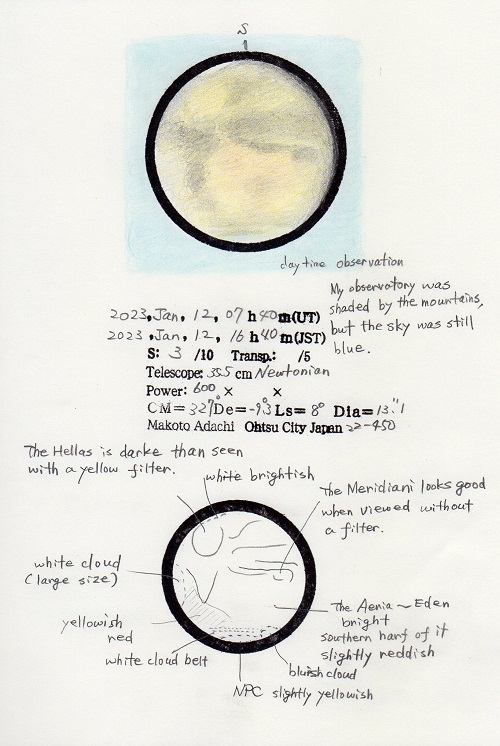 S
daytime observation
My observatory was
shaded by the mountains,
but the sky was still
blue.
2023, Jan, 12, 07 h 40 m(UT)
2023, Jan, 12, 16 h 40 m(JST)
S: 3 /10 Transp.: /5
Telescope: 35.5 cm Newtonian
Power: 600 × ×
CM= 327° De= -9.3 Ls= 8° Dia= 13."1
Makoto Adachi Ohtsu City Japan 22-450
The Hellas is darke than seen
with a yellow filter.
white brightish
The Meridiani looks good
when viewed without
a filter.
white cloud
(large size)
yellowish
red
white cloud belt
The Aeria ~ Eden
bright
southern harf of it
slightly reddish
bluish cloud
NPC slightly yellowish